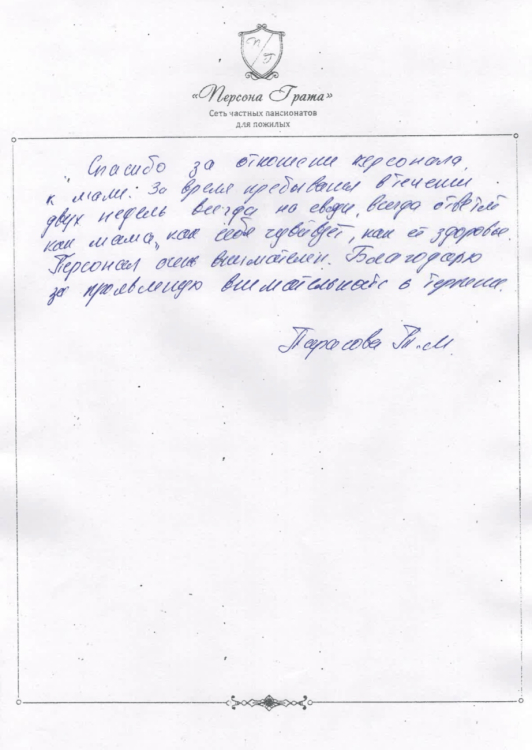 П Г
«Персона Грата»
Сеть частных пансионатов
для пожилых
Спасибо за отношение персонала
к маме. За время пребывания в течении
двух недель всегда на связи, всегда ответят
как мама, как себя чувствует, как её здоровье.
Персонал очень внимателен. Благодарю
за проявленную внимательность и терпение.
Тарасова Т.М.